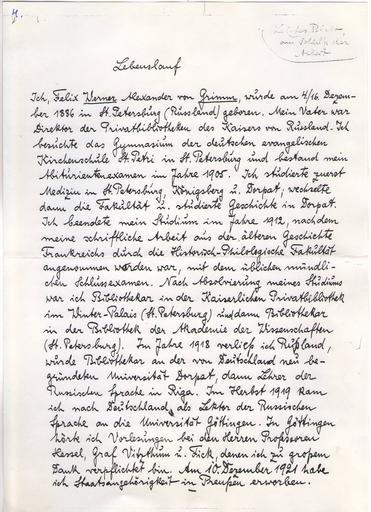 Lebenslauf
Ich, Felix Werner Alexander von Grimm, wurde am 4/16. Dezem-
ber 1886 in St. Petersburg (Russland) geboren. Mein Vater war
Direktor der Privatbibliotheken des Kaisers von Russland. Ich
besuchte das Gymnasium der deutschen evangelischen
Kirchenschule St. Petri in St. Petersburg und bestand mein
Abiturientenexamen im Jahre 1905. Ich studierte zuerst
Medizin in St. Petersburg, Königsberg u. Dorpat, wechselte
dann die Fakultät u. studierte Geschichte in Dorpat.
Ich beendete mein Studium im Jahre 1912, nachdem
meine schriftliche Arbeit aus der älteren Geschichte
Frankreichs durch die Historisch-Philologische Fakultät
angenommen worden war, mit dem üblichen mündli-
chen Schlussexamen. Nach Absolvierung meines Studiums
war ich Bibliothekar in der Kaiserlichen Privatbibliothek
im Winter-Palais (St. Petersburg) und dann Bibliothekar
in der Bibliothek der Akademie der Wissenschaften
(St. Petersburg). Im Jahre 1918 verliess ich Rußland,
wurde Bibliothekar an der von Deutschland neu be-
gründeten Universität Dorpat, dann Lehrer der
Russischen Sprache in Riga. Im Herbst 1919 kam
ich nach Deutschland, als Lektor der Russischen
Sprache an die Universität Göttingen. In Göttingen
hörte ich Vorlesungen bei den Herren Professoren
Hessel, Graf Vitzthum u. Fick, denen ich zu großem
Dank verpflichtet bin. Am 10. Dezember 1921 habe
ich Staatsangehörigkeit in Preußen erworben.